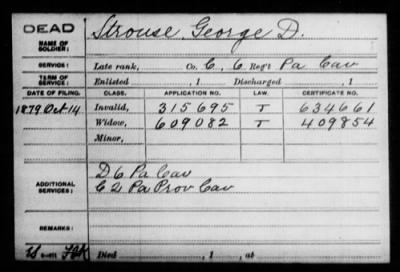 DEAD Strouse, George D.
NAME OF SOLDIER:
SERVICE: Late rank, Co. C, 6 Reg't Pa Cav
TERM OF SERVICE: Enlisted , 1 Discharged , 1
DATE OF FILING. CLASS. APPLICATION NO. LAW. CERTIFICATE NO.
1879 Oct 14 Invalid, 315695 T 634661
Widow, 609082 T 409854
Minor,
ADDITIONAL SERVICES: D 6 Pa Cav
C 2 Pa Prov Cav
REMARKS:
Died , 1 , at